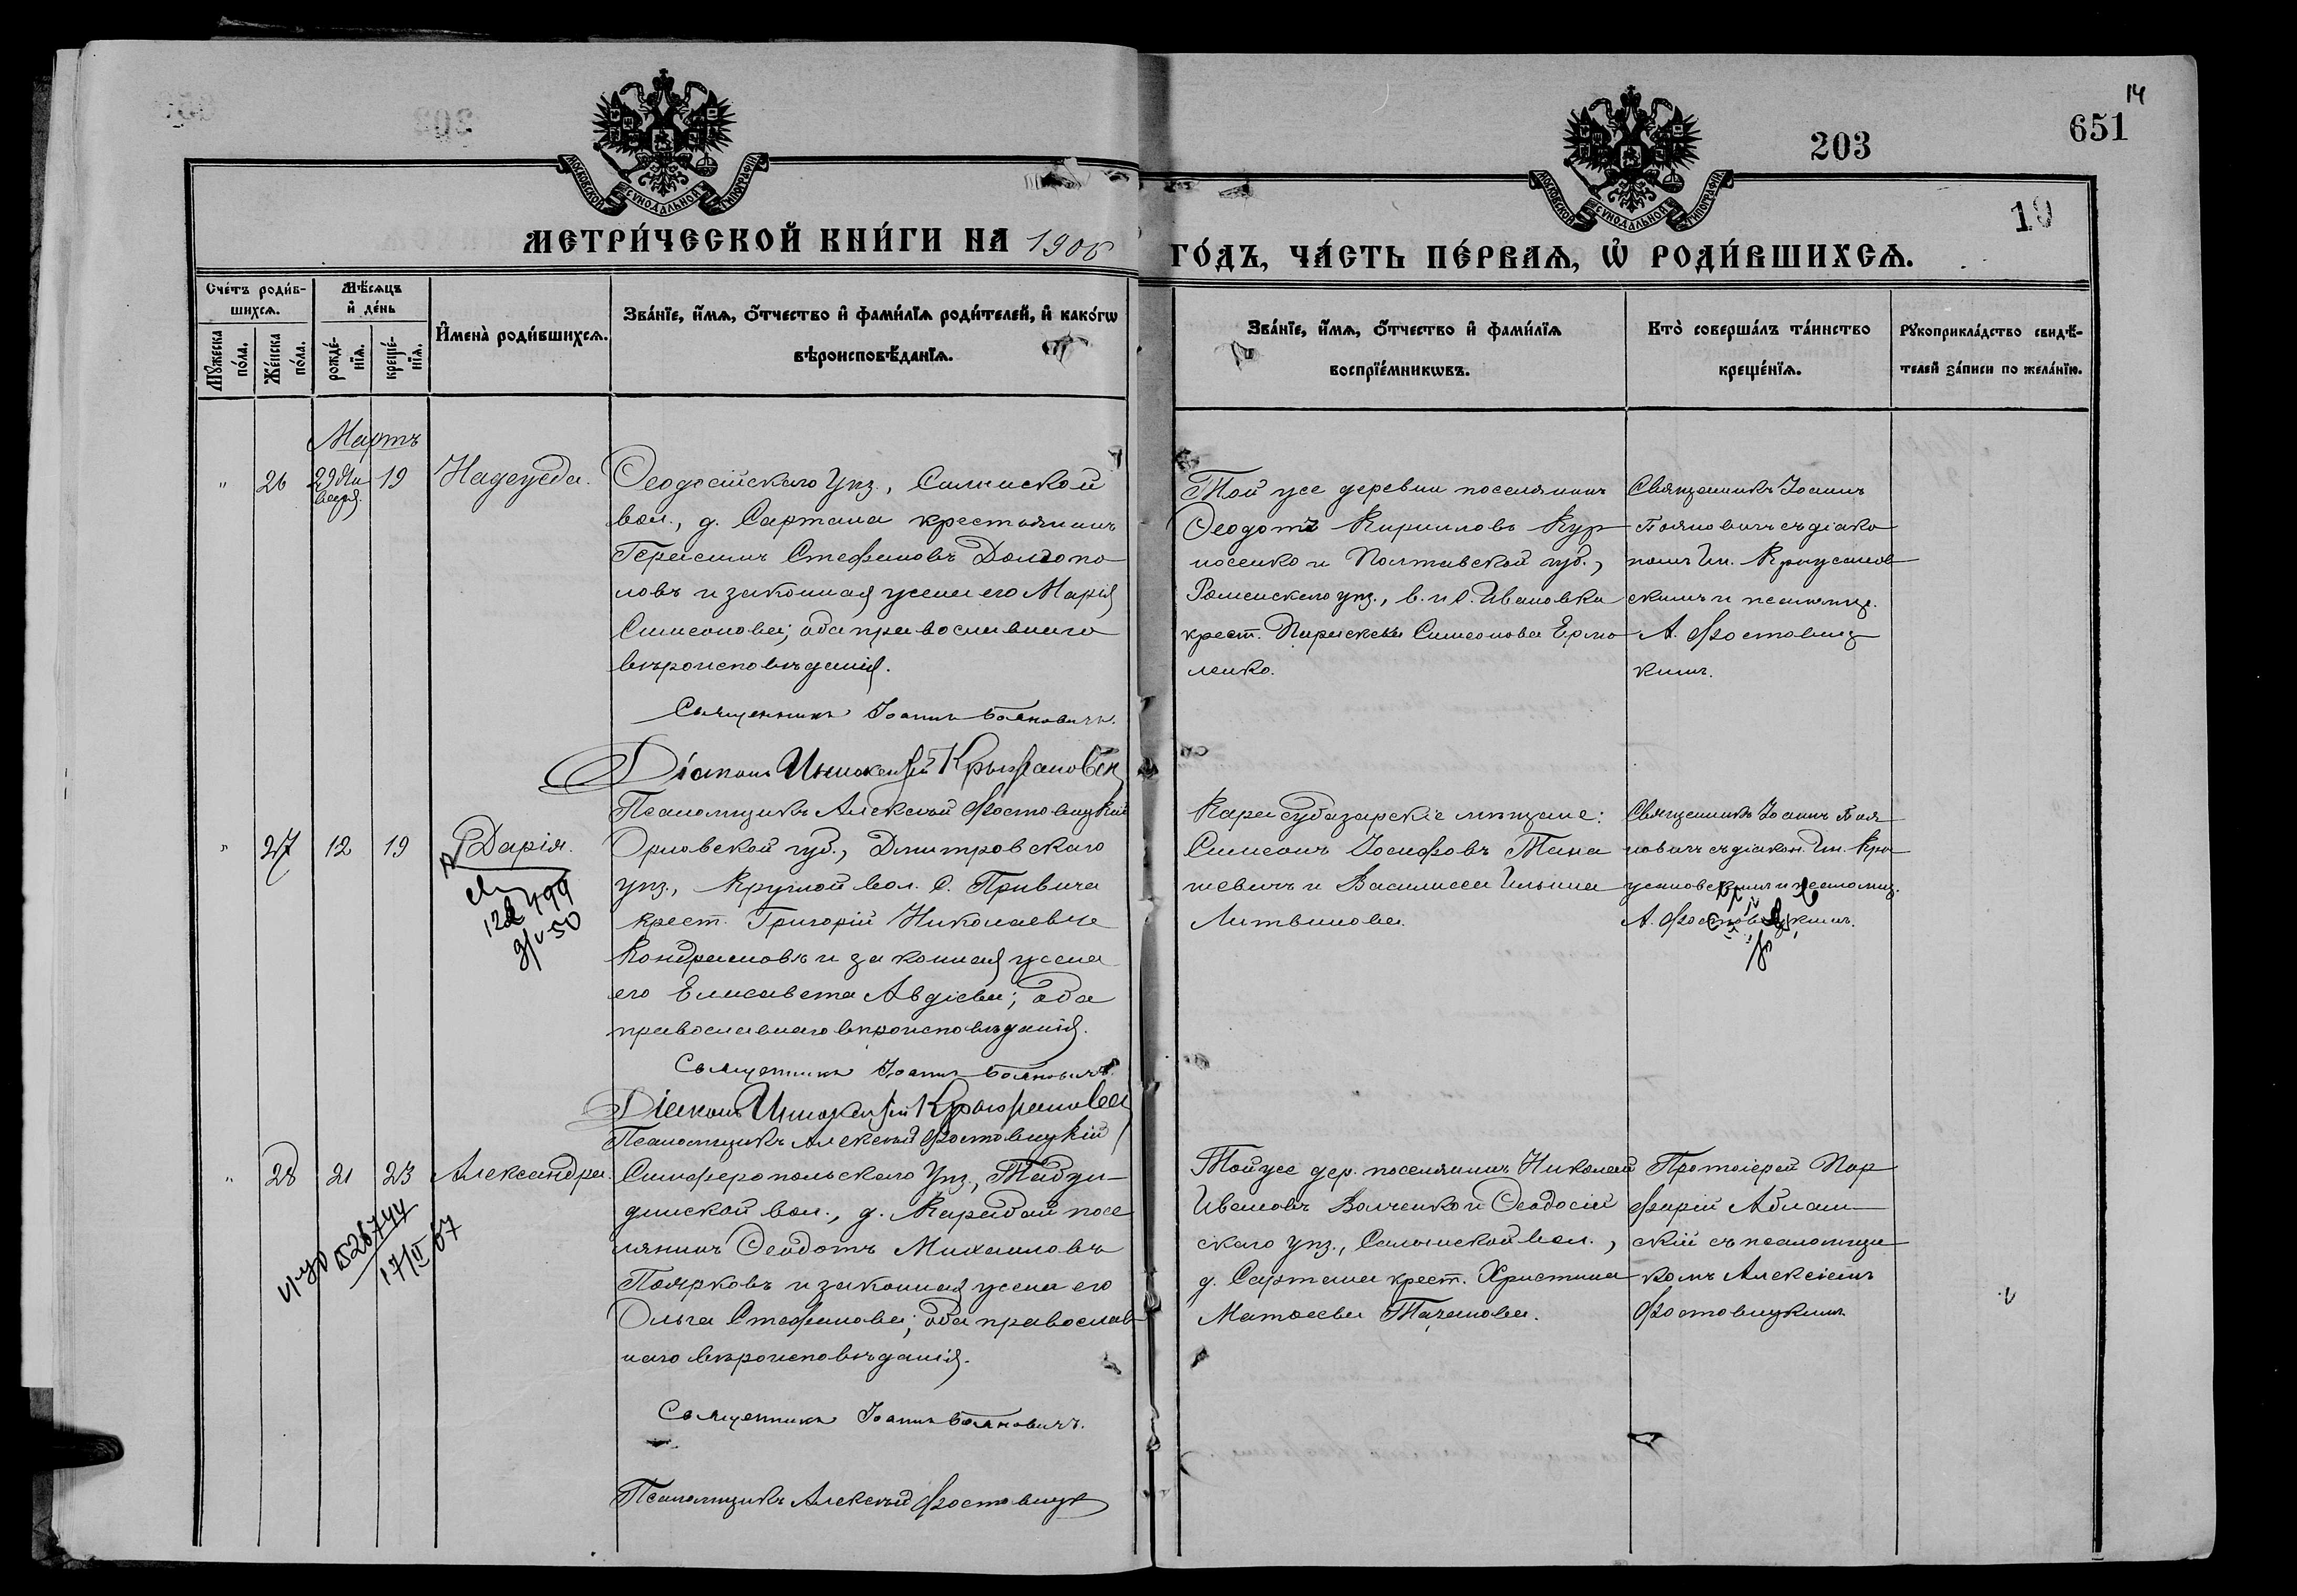 14
651
203
19
МОСКОВСКОЙ СУНОДАЛЬНОЙ ТИПОГРАФІИ
МОСКОВСКОЙ СУНОДАЛЬНОЙ ТИПОГРАФІИ
МЕТРИ́ЧЕСКОЙ КНИ́ГИ НА 1906
ГО́ДЪ, ЧА́СТЬ ПЕ́РВАѦ, Ѡ҆ РОДИ́ВШИХСѦ.
Сче́тъ роди́в-
шихсѧ.
Мѣ́сѧцъ
и҆ де́нь
Мꙋ́жеска по́ла.
Же́нска по́ла.
рожде́-
нїѧ.
креще́-
нїѧ.
И҆мена̀ роди́вшихсѧ.
Зва́нїе, и҆́мѧ, ѻ҆́тчество и҆ фами́лїѧ роди́телей, и҆ како́гѡ
вѣроисповѣ́данїѧ.
Зва́нїе, и҆́мѧ, ѻ҆́тчество и҆ фами́лїѧ
воспрїе́мникѡвъ.
Кто̀ соверша́лъ та́инство
креще́нїѧ.
Рꙋкоприкла́дство свидѣ́-
телей за́писи по жела́нїю.
Мартъ
" 26 29 Ян
варя. 19 Надежда.
Ѳеодосійскаго уѣз., Салынской
вол., д. Сартана крестьянинъ
Герасимъ Стефановъ Долгопо
ловъ и законная жена его Марія
Симеонова; оба православнаго
вѣроисповѣданія.
Священникъ Іоаннъ Бояновичъ.
Діаконъ Иннокентій Крыжановскі
Псаломщикъ Алексѣй Фостовицкій
Той же деревни поселянинъ
Ѳеодотъ Кирилловъ Кур
носенко и Полтавской губ.,
Роменскаго уѣз., в. и с. Ивановки
крест. Параскева Симеонова Ермо
ленко.
Священникъ Іоаннъ
Бояновичъ съ діако
номъ Ин. Крыжанов
скимъ и псаломщ.
А. Фостовиц
кимъ.
" 27 12 19 Дарія.
499
50
Орловской губ., Дмитровскаго
уѣз., Круглой вол. с. Привича
крест. Григорій Николаевъ
Кондрашовъ и законная жена
его Елисавета Авдіева; оба
православнаго вѣроисповѣданія.
Священникъ Іоаннъ Бояновичъ.
Діаконъ Иннокентій Крыжановскі
Псаломщикъ Алексѣй Фостовицкій
Карасубазарскіе мѣщане:
Симеонъ Іосифовъ Тана
шевичъ и Василиса Ильина
Литвинова.
Священникъ Іоаннъ Боя
новичъ съ діакон. Ин. Кры
жановскимъ и псаломщ.
А. Фостовицкимъ.
" 28 21 23 Александра.
528744
17/II 67
Симферопольскаго уѣз., Табул-
динской вол., д. Карабай посе
лянинъ Ѳеодотъ Михаиловъ
Поярковъ и законная жена его
Ольга Стефанова; оба православ
наго вѣроисповѣданія.
Священникъ Іоаннъ Бояновичъ.
Псаломщикъ Алексѣй Фостовицк
Той же дер. поселянинъ Николай
Ивановъ Волченко и Ѳеодосій
скаго уѣз., Салынской вол.,
д. Сартана крест. Христина
Матѳеева Таганова.
Протоіерей Пор
фирій Аблам
скій съ псаломщи
комъ Алексіемъ
Фостовицкимъ.